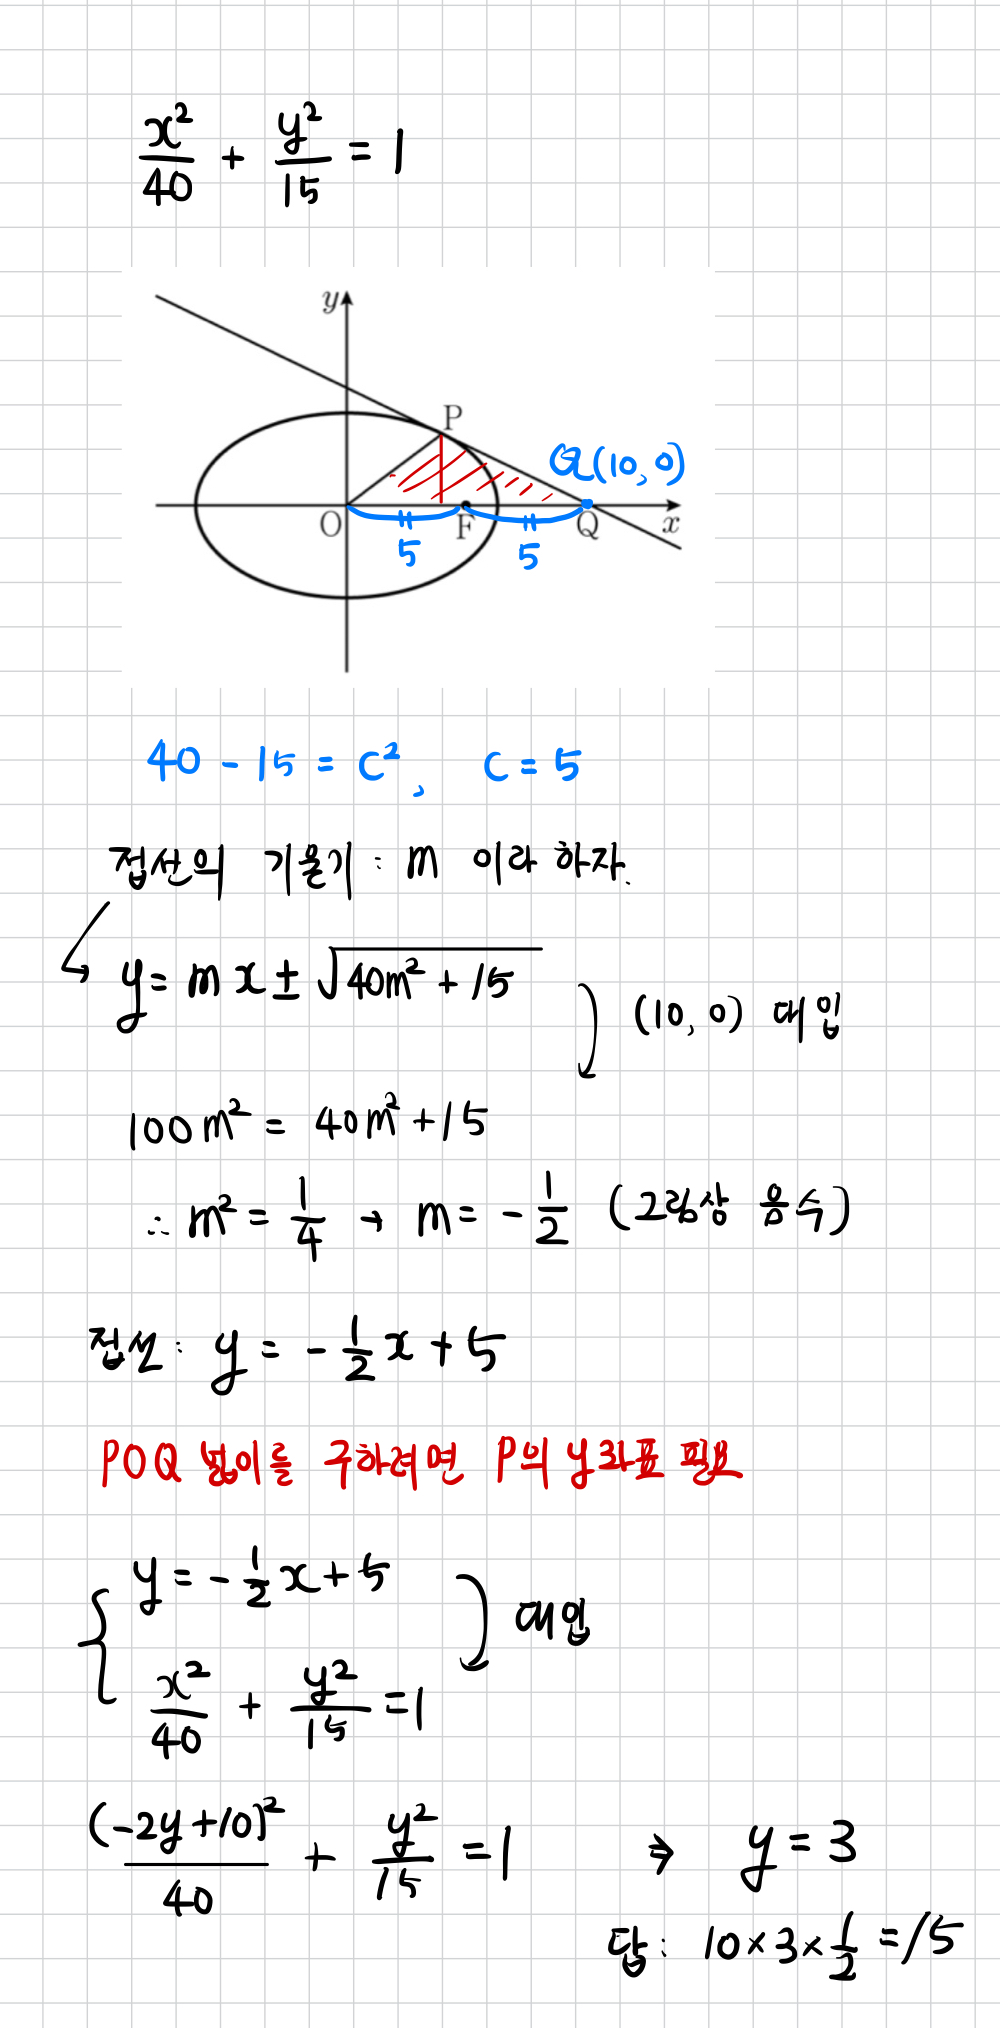 x²/40 + y²/15 = 1
y
P
Q(10, 0)
O F Q x
5 5
40 - 15 = c², c = 5
접선의 기울기 : m 이라 하자.
y = mx ± √(40m² + 15)
(10, 0) 대입
100m² = 40m² + 15
∴ m² = 1/4 → m = - 1/2 (그림상 음수)
접선 : y = - 1/2 x + 5
POQ 넓이를 구하려면 P의 y좌표 필요
y = - 1/2 x + 5
대입
x²/40 + y²/15 = 1
(-2y + 10)²/40 + y²/15 = 1 ⇒ y = 3
답 : 10 × 3 × 1/2 = 15